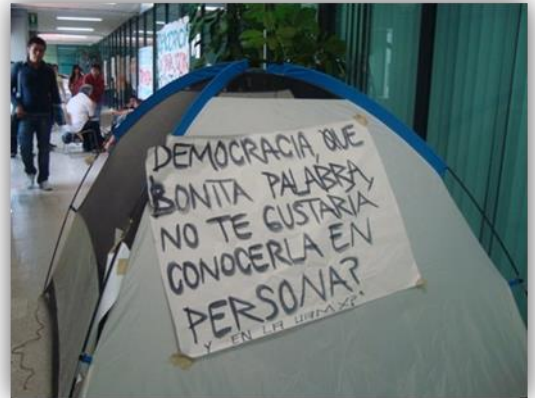 DEMOCRACIA, QUE
BONITA PALABRA,
NO TE GUSTARIA
CONOCERLA EN
PERSONA?
Y EN LA UAMX?